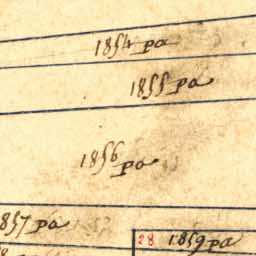 1854 pa
1855 pa
1856 pa
1857 pa
28 1859 pa